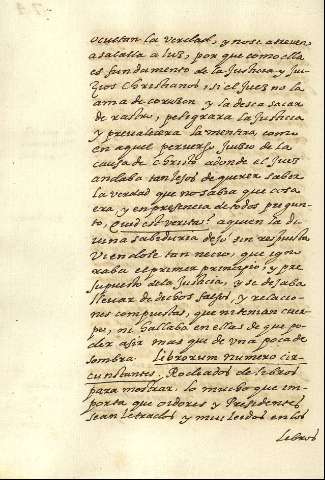 ocultan la verdad, y no se atreven
a sacalla a luz, por que como ella
es fundamento de la Justicia y Jui-
zios Christianos, si el Juez no la
ama de corazon y la desea sacar
de rastro, peligrara la Justicia
y prevalecera la mentira, como
en aquel perverso Juizio de la
causa de Christo adonde el Juez
andaba tan lejos de querer saber
la verdad que no sabia que cosa
era, y en presencia de todos pregun-
to, Quid est veritas? a quien la di-
uina sabiduria dejo sin respuesta
viendole tan necio, que igno-
raba el primer principio, y pre
supuesto de la Justicia, y se dejaba
lleuar de dichos falsos, y relacio-
nes compuestas, que ni tenian cuer-
po, ni hallaba en ellas de que po-
der asir mas que de una poca de
sombra Librorum numero cir-
cunstantes, Rodeados de libros
para mostrar, lo mucho que im-
porta que oidores y Presidentes
sean letrados y mui leidos en los
libros